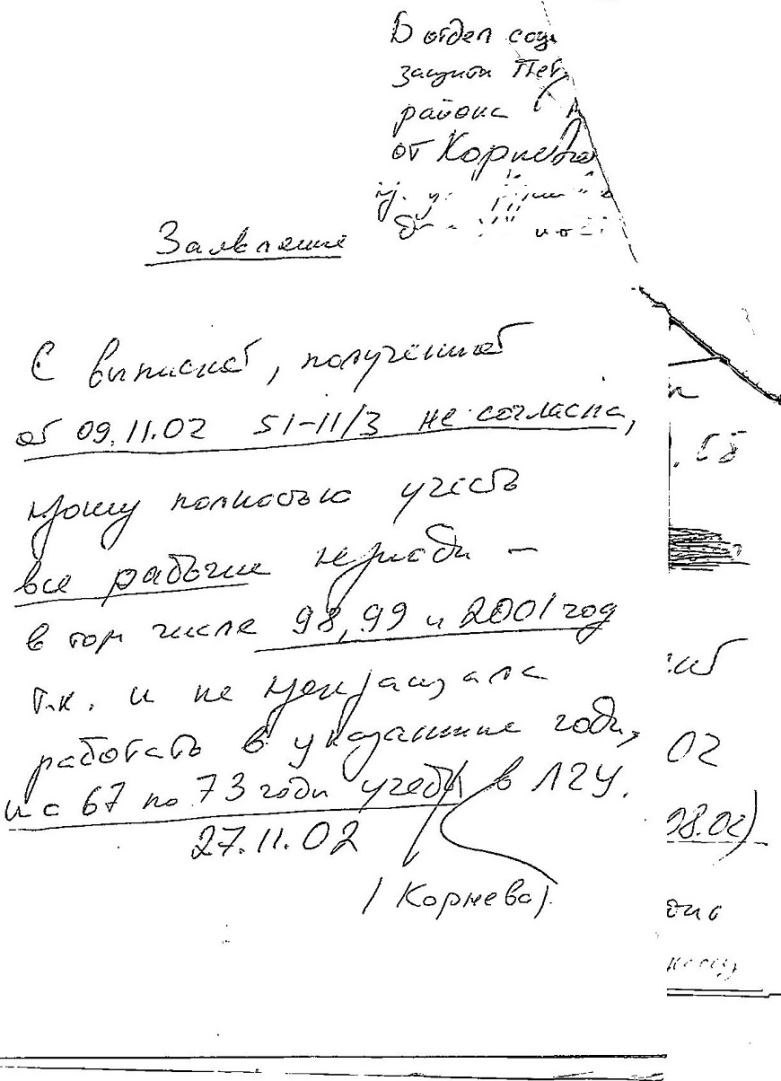 В отдел соц
защиты Пет
района
от Корнева
Заявление
С выпиской, полученной
от 09.11.02 51-11/3 не согласна,
прошу полностью учесть
все рабочие периоды –
в том числе 98, 99 и 2001 год
т.к. и не прекращала
работать в указанные годы,
и с 67 по 73 годы учебы в ЛГУ.
27.11.02
/Корнева/.
02
98.02)